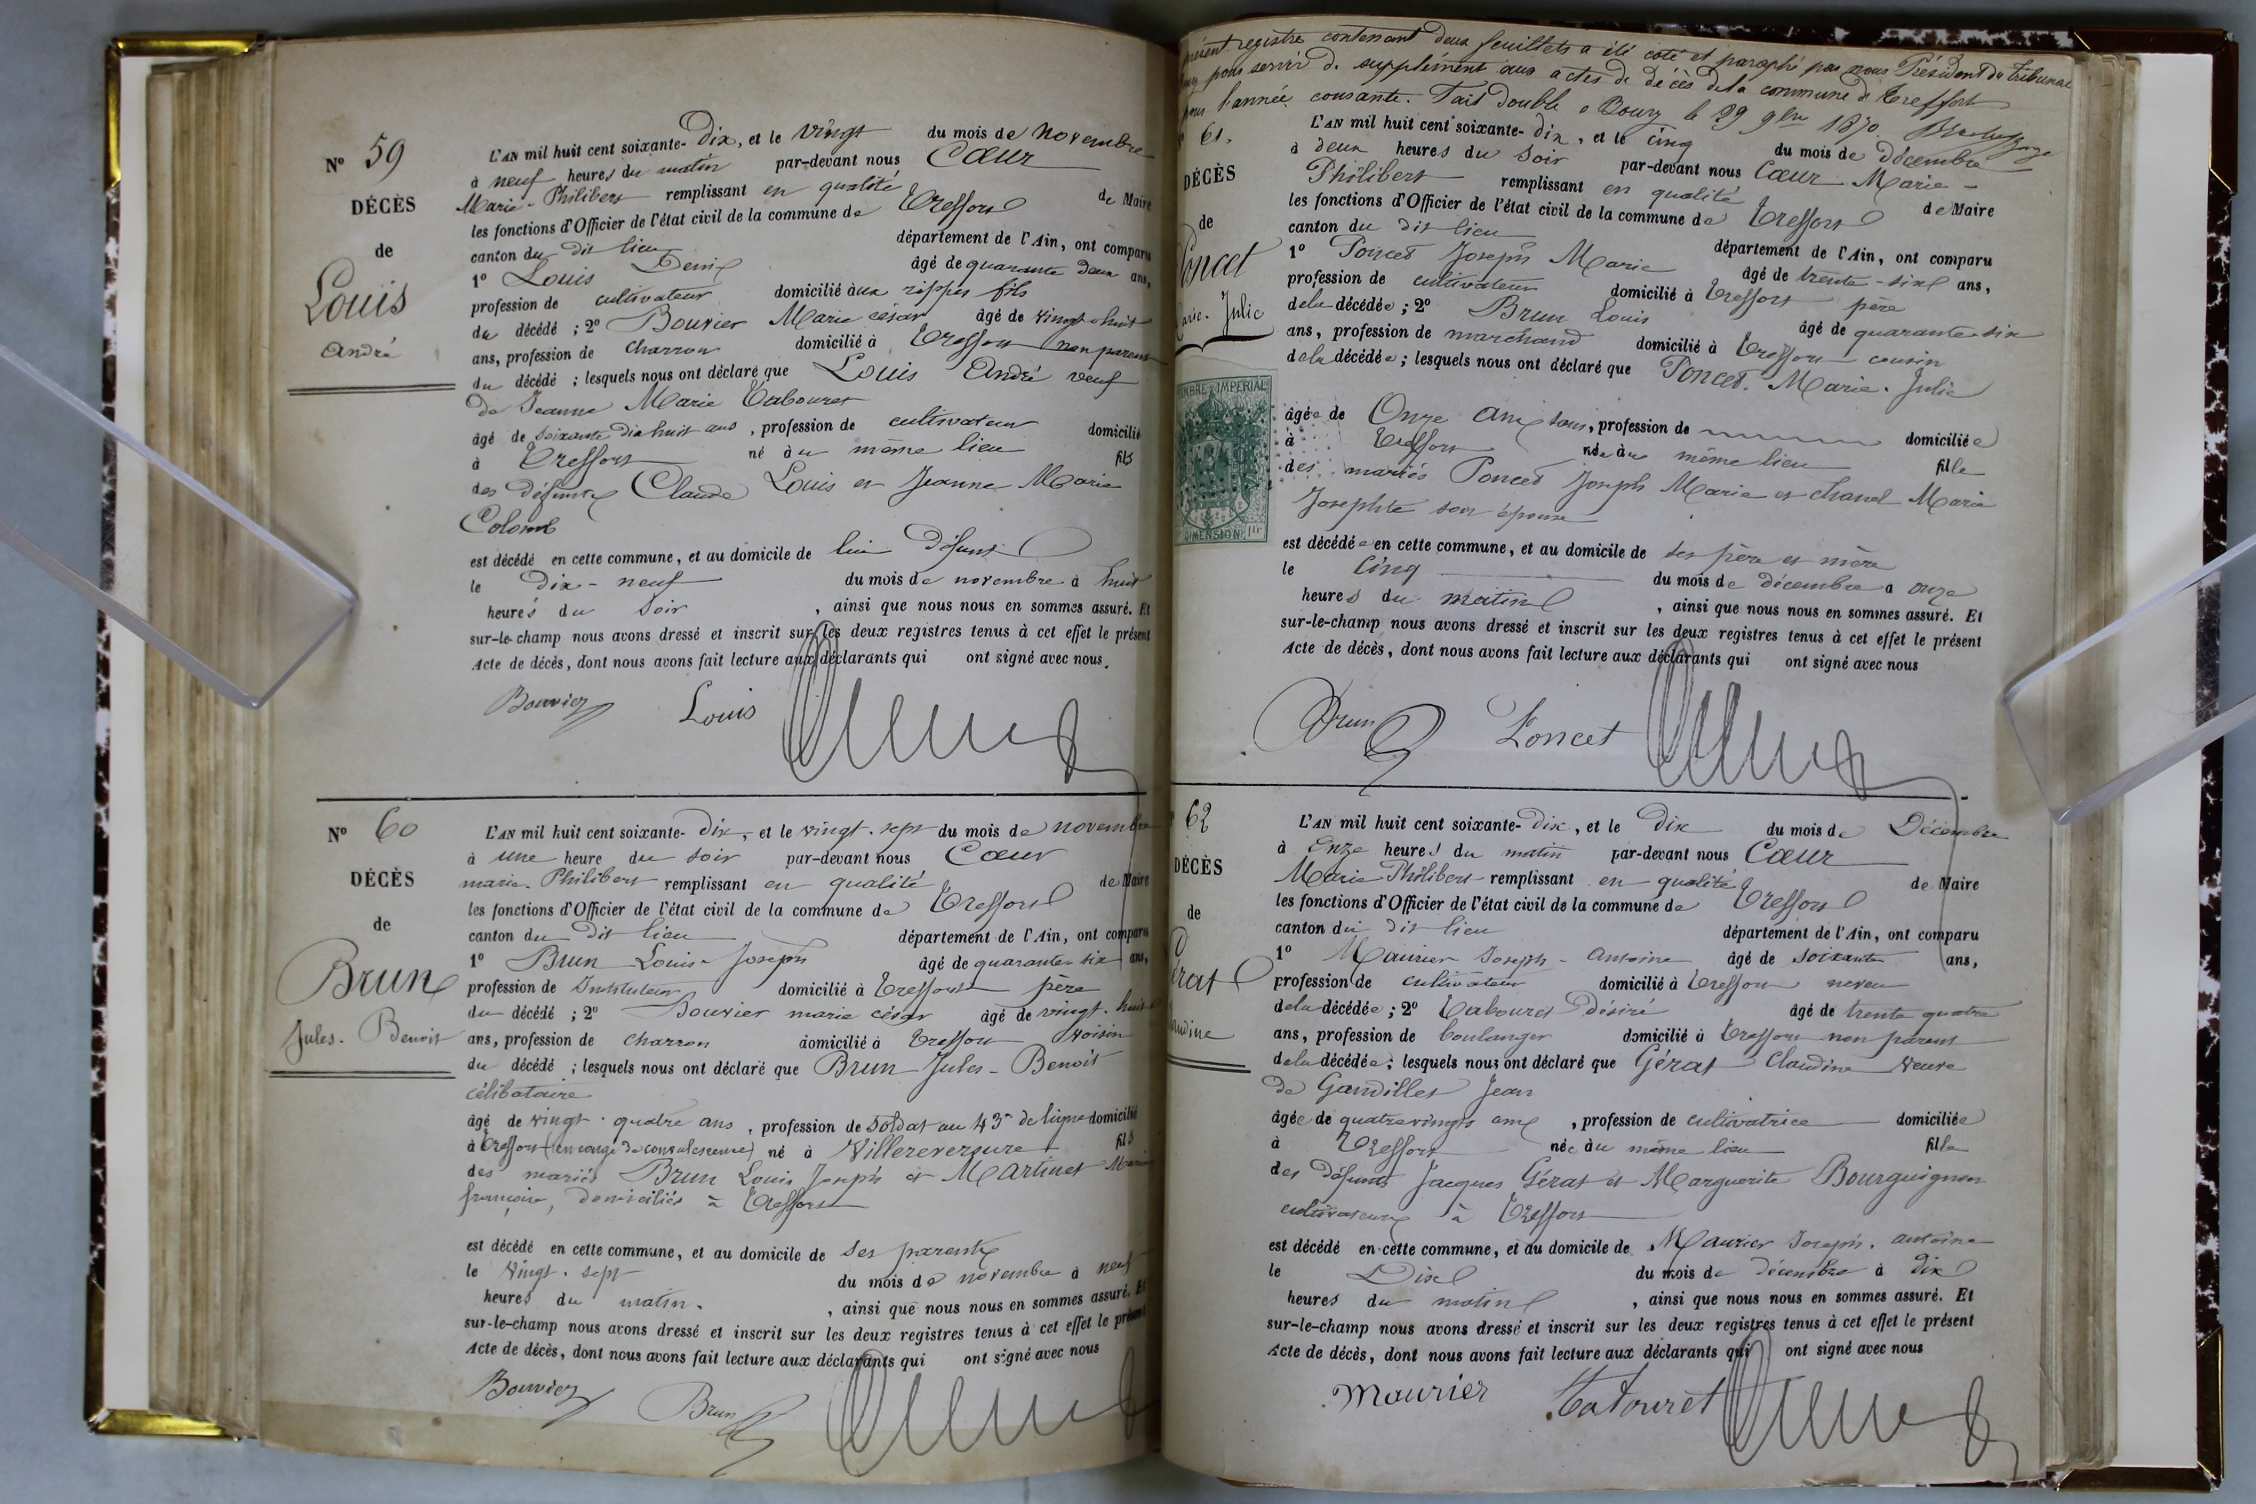 N° 59
DÉCÈS
de
Louis
André
L'AN mil huit cent soixante-Dix, et le vingt du mois de novembre
à neuf heures du matin par-devant nous Cœur
Marie-Philibert remplissant en qualité de Maire
les fonctions d'Officier de l'état civil de la commune de Treffort
canton du dit lieu département de l'Ain, ont comparu
1° Louis Denis âgé de quarante deux ans,
profession de cultivateur domicilié aux rippes fils
du décédé ; 2° Bouvier Marie césar âgé de vingt-huit
ans, profession de charron domicilié à Treffort non parent
du décédé ; lesquels nous ont déclaré que Louis André veuf
de Jeanne Marie Tabouret
âgé de soixante dix huit ans, profession de cultivateur domicilié
à Treffort né au même lieu fils
des défunts Claude Louis et Jeanne Marie
Colomb
est décédé en cette commune, et au domicile de lui Défunt
le dix-neuf du mois de novembre à huit
heures du soir, ainsi que nous nous en sommes assuré. Et
sur-le-champ nous avons dressé et inscrit sur les deux registres tenus à cet effet le présent
Acte de décès, dont nous avons fait lecture aux déclarants qui ont signé avec nous.
Bouvier Louis
N° 60
DÉCÈS
de
Brun
Jules-Benoit
L'AN mil huit cent soixante-Dix, et le vingt-sept du mois de novembre
à une heure du soir par-devant nous Cœur
marie-Philibert remplissant en qualité de Maire
les fonctions d'Officier de l'état civil de la commune de Treffort
canton du dit lieu département de l'Ain, ont comparu
1° Brun Louis-Joseph âgé de quarante-six ans,
profession de Instituteur domicilié à Treffort père
du décédé ; 2° Bouvier marie césar âgé de vingt-huit
ans, profession de charron domicilié à Treffort voisin
du décédé ; lesquels nous ont déclaré que Brun Jules-Benoit
célibataire
âgé de vingt-quatre ans, profession de soldat au 43e de ligne domicilié
à Treffort (en congé de convalescence) né à Villereversure fils
des mariés Brun Louis Joseph et Martinet Marie
françoise, domiciliés à Treffort
est décédé en cette commune, et au domicile de ses parents
le vingt-sept du mois de novembre à neuf
heures du matin, ainsi que nous nous en sommes assuré. Et
sur-le-champ nous avons dressé et inscrit sur les deux registres tenus à cet effet le présent
Acte de décès, dont nous avons fait lecture aux déclarants qui ont signé avec nous
Bouvier Brun
présent registre contenant deux feuillets a été coté et paraphé par nous Président du tribunal
pour servir de supplément aux actes de décès de la commune de Treffort
pour l'année courante. Fait double à Bourg le 29 9bre 1870.
61.
DÉCÈS
de
Poncet
Marie-Julie
TIMBRE IMPÉRIAL
DIMENSION 1fr
L'AN mil huit cent soixante-dix, et le cinq du mois de décembre
à deux heures du soir par-devant nous Cœur Marie-
Philibert remplissant en qualité de Maire
les fonctions d'Officier de l'état civil de la commune de Treffort
canton du dit lieu département de l'Ain, ont comparu
1° Poncet Joseph Marie âgé de trente-six ans,
profession de cultivateur domicilié à Treffort père
de la décédée ; 2° Brun Louis âgé de quarante-six
ans, profession de marchand domicilié à Treffort cousin
de la décédée ; lesquels nous ont déclaré que Poncet Marie-Julie
âgée de Onze ans, profession de domiciliée
à Treffort née au même lieu fille
des mariés Poncet Joseph Marie et chanel Marie
Josephte son épouse
est décédée en cette commune, et au domicile de ses père et mère
le Cinq du mois de décembre à onze
heures du matin, ainsi que nous nous en sommes assuré. Et
sur-le-champ nous avons dressé et inscrit sur les deux registres tenus à cet effet le présent
Acte de décès, dont nous avons fait lecture aux déclarants qui ont signé avec nous
Brun Poncet
62
DÉCÈS
de
Gérat
Claudine
L'AN mil huit cent soixante-dix, et le Dix du mois de Décembre
à Onze heures du matin par-devant nous Cœur
Marie Philibert remplissant en qualité de Maire
les fonctions d'Officier de l'état civil de la commune de Treffort
canton du dit lieu département de l'Ain, ont comparu
1° Maurier Joseph-Antoine âgé de soixante ans,
profession de cultivateur domicilié à Treffort neveu
de la décédée ; 2° Tabouret Désiré âgé de trente quatre
ans, profession de boulanger domicilié à Treffort non parent
de la décédée ; lesquels nous ont déclaré que Gérat Claudine veuve
de Gandillet Jean
âgée de quatrevingts ans, profession de cultivatrice domiciliée
à Treffort née au même lieu fille
des défunts Jacques Gérat et Marguerite Bourguignon
cultivateurs à Treffort
est décédé en cette commune, et au domicile de Maurier Joseph-antoine
le Dix du mois de décembre à dix
heures du matin, ainsi que nous nous en sommes assuré. Et
sur-le-champ nous avons dressé et inscrit sur les deux registres tenus à cet effet le présent
Acte de décès, dont nous avons fait lecture aux déclarants qui ont signé avec nous
Maurier Tabouret